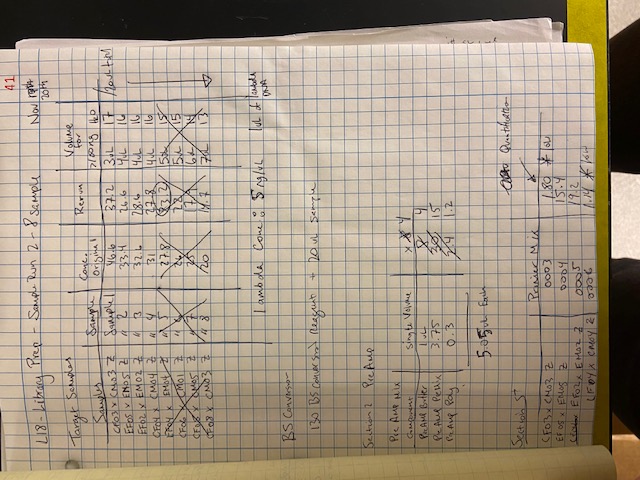 41
L18 - Library Prep - Sample Run 2 - 8 Sample Nov 20th
Target Samples
Samples Sample Conc. Original Rerun Volume for >100ng H2O
CF03 x CM03 Z Sample 1 46.6 37.2 3uL 17 /20uL total
EF05 x EM05 Z " 2 33.4 26.6 4uL 16
EF02 x EM02 Z " 3 32.6 28.6 4uL 16
CF04 x CM04 Z " 4 31 27.8 4uL 16
EF04 x EM04 Z " 5 27.8 23.2 5uL 15
CF06 x CM01 Z " 6 5uL 15
CF05 x CM05 Z " 7 6uL 14
CF08 x CM03 Z " 8 20 7uL 13
Lambda Conc: 5 ng/uL 1uL of lambda DNA
BS Conversion
130 BS Conversion Reagent + 20 uL Sample
Section 2 PreAmp
Pre Amp Mix
Component Single Volume x 8 4
PreAmp Buffer 1uL 8 4
PreAmp PreMix 3.75 30 15
PreAmp Poly 0.3 2.4 1.2
5.05uL Each
Section 5 Quantification
Primer Mix
CF03 x CM03 Z 0003 1.80 * low
EF05 x EM05 Z 0004 15.4
EF02 x EM02 Z 0005 19.2
CF04 x CM04 Z 0006 1.14 * low